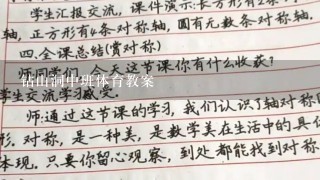 学生汇报交流，课件演示：长方形有2条对称
轴，正方形有4条对称轴，圆有无数条对称轴。
四.全课总结（赏对称）
师：同学们，今天这节课你有什么收获？
钻山洞中班体育教案
学生交流学习感受。
师：通过这节课的学习，我们认识了轴对称图
形.对称，是一种美，是数学美在生活中的具
体现.只要你留心观察，到处都能找到对称